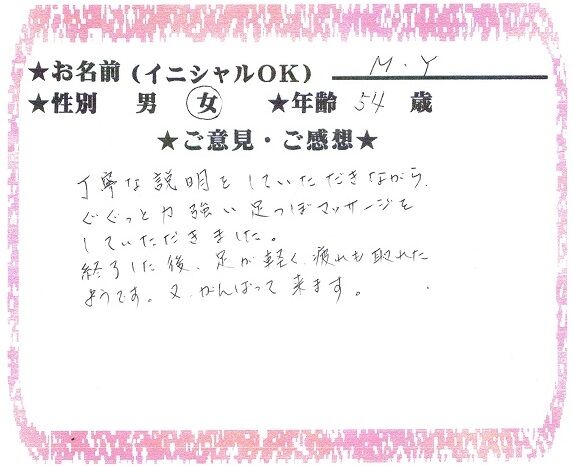 ★お名前(イニシャルOK) M・Y
★性別 男 女 ★年齢 54 歳
★ご意見・ご感想★
丁寧な説明をしていただきながら、
ぐぐっと力強い足つぼマッサージを
していただきました。
終了した後、足が軽く、疲れも取れた
ようです。又、がんばって来ます。